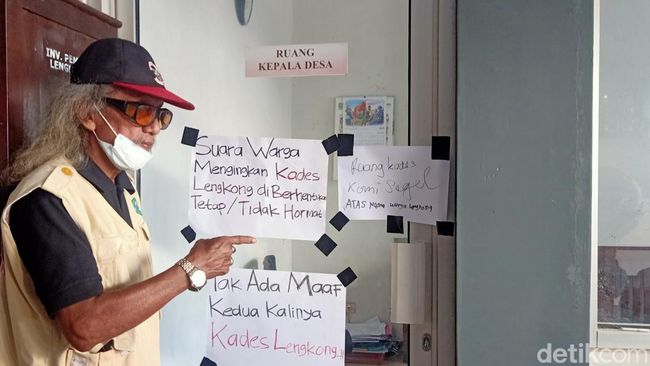 INV. PEM
LENGK
RUANG
KEPALA DESA
Suara Warga
Mengingkan Kades
Lengkong di Berhentikan
Tetap/Tidak Hormat
Ruang kades
Kami Segel
ATAS Nama warga Lengkong
Tak Ada Maaf
Kedua Kalinya
Kades Lengkong..!!
detikcom